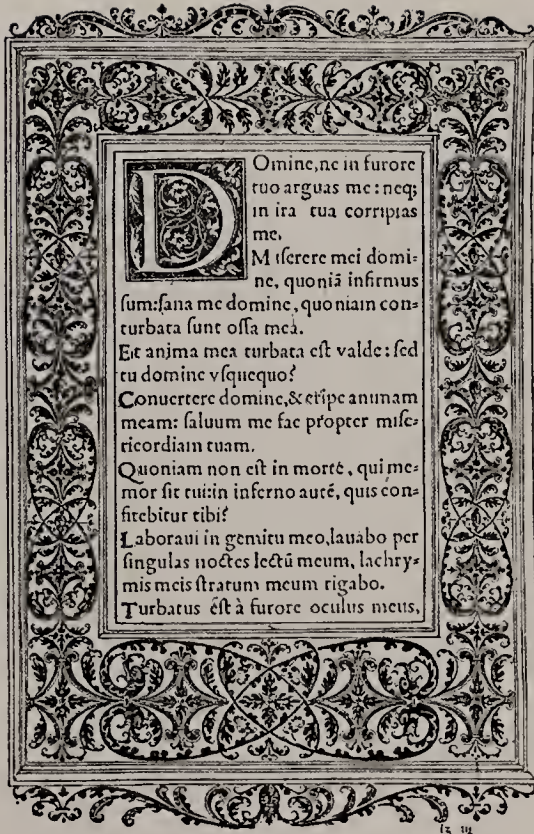 DOmine, ne in furore
tuo arguas me: neq;
in ira tua corripias
me.
Miserere mei domi=
ne, quoniã infirmus
sum: sana me domine, quoniam con=
turbata sunt ossa mea.
Et anima mea turbata est valde: sed
tu domine vsquequo?
Conuertere domine, & eripe animam
meam: saluum me fac propter mise=
ricordiam tuam.
Quoniam non est in morte, qui me=
mor sit tui: in inferno autẽ, quis con=
fitebitur tibi?
Laboraui in gemitu meo, lauabo per
singulas noctes lectũ meum, lachry=
mis meis stratum meum rigabo.
Turbatus est à furore oculus meus,